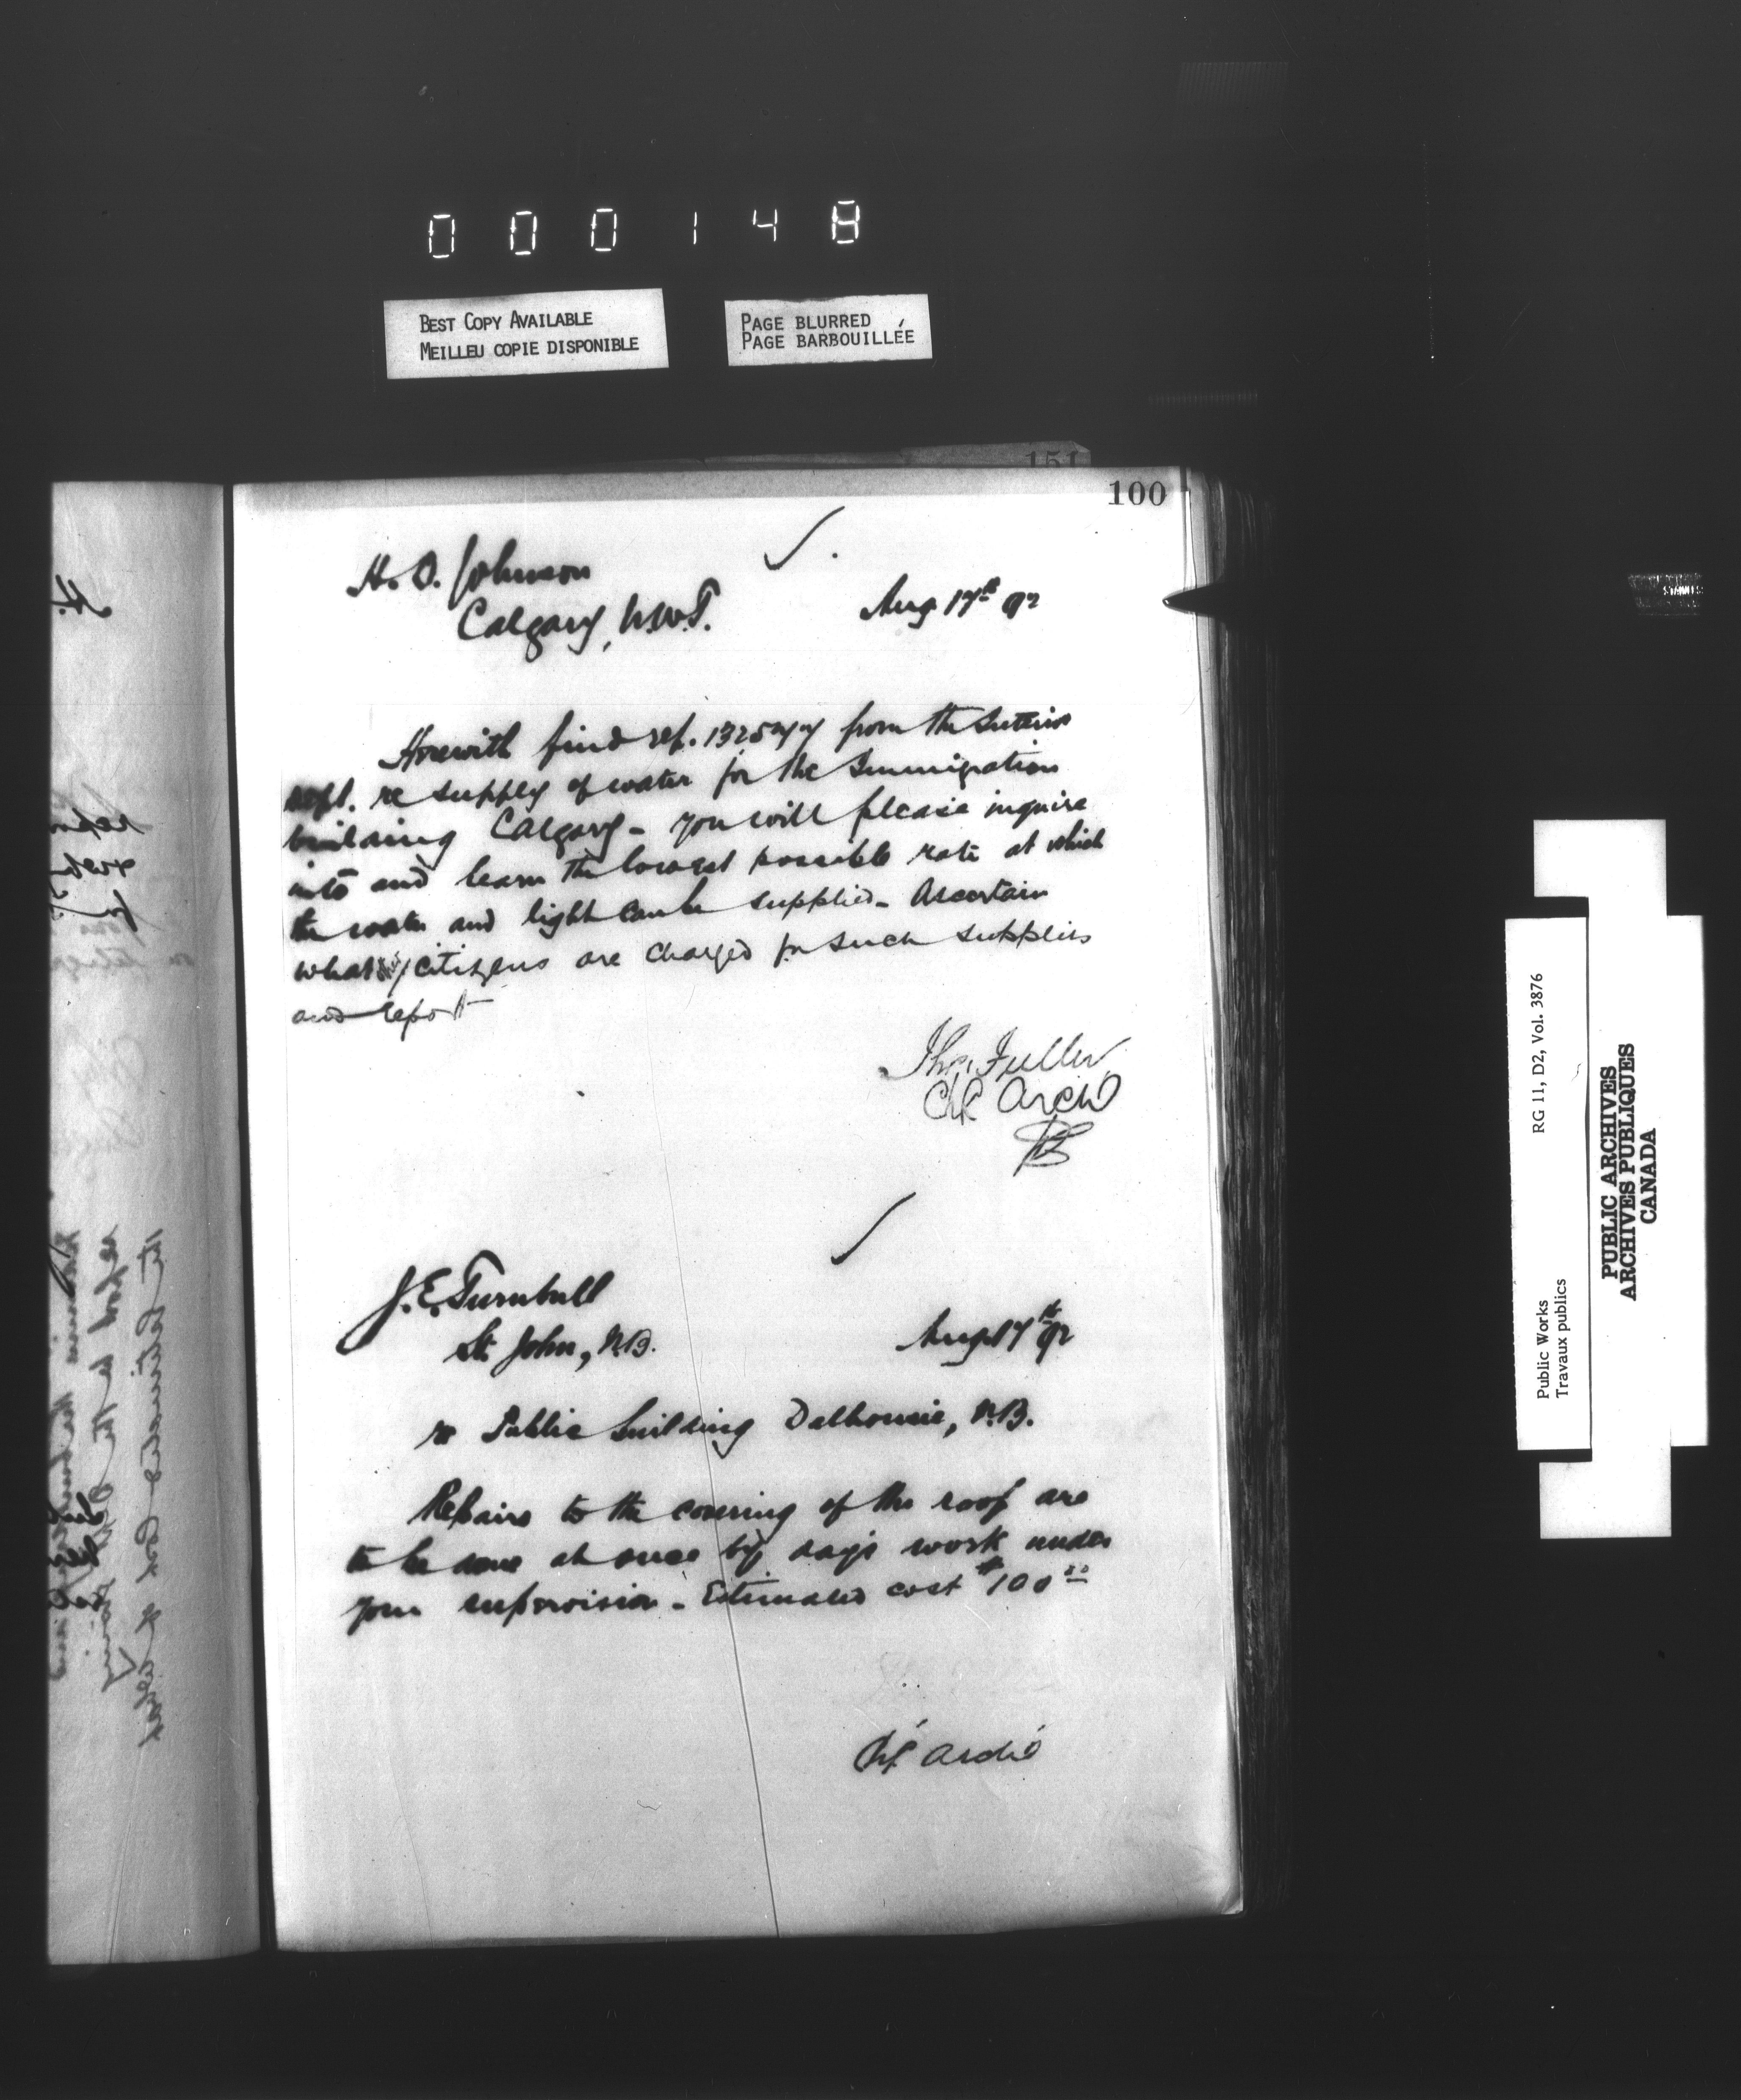 000148
BEST COPY AVAILABLE
MEILLEU COPIE DISPONIBLE
PAGE BLURRED
PAGE BARBOUILLÉE
151
100
H. D. Johnson
Calgary, N.W.T.
Aug 17th 92
Herewith find ref. 132577 from the Interior
Dept. re supply of water for the Immigration
building Calgary - You will please inquire
into and learn the lowest possible rate at which
the water and light can be supplied - Ascertain
what citizens are charged for such supplies
and report
Thos. Fuller
Chf Archt
J. E. Turnbull
St. John, N.B.
Aug 17th 92
re Public building Dalhousie, N.B.
Repairs to the covering of the roof are
to be done at once by days work under
your supervision - Estimated cost $100.00
Chf Archt
RG 11, D2, Vol. 3876
Public Works
Travaux publics
PUBLIC ARCHIVES
ARCHIVES PUBLIQUES
CANADA